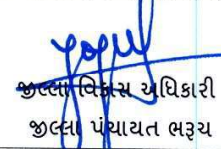 જીલ્લા વિકાસ અધિકારી
જીલ્લા પંચાયત ભરૂચ